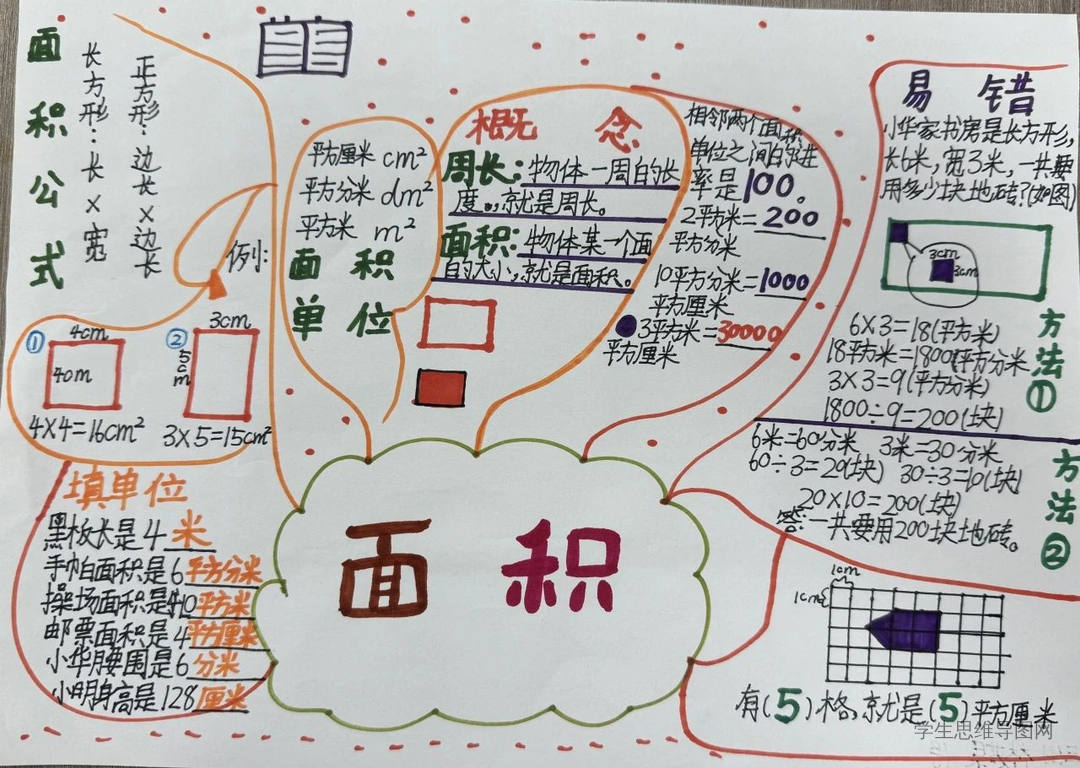 面积公式
长方形：长×宽
正方形：边长×边长
例：
① 4cm
4cm
4×4=16cm²
② 3cm
5cm
3×5=15cm²
填单位
黑板长是4米
手帕面积是6平方分米
操场面积是410平方米
邮票面积是4平方厘米
小华腰围是6分米
小明身高是128厘米
平方厘米 cm²
平方分米 dm²
平方米 m²
面积
单位
概念
周长：物体一周的长
度，就是周长。
面积：物体某一个面
的大小，就是面积。
相邻两个面积
单位之间的进
率是100。
2平方米=200
平方分米
10平方分米=1000
平方厘米
3平方米=30000
平方厘米
面积
易错
小华家书房是长方形，
长6米，宽3米，一共要
用多少块地砖？(如图)
3cm
3cm
方法①
6×3=18(平方米)
18平方米=1800平方分米
3×3=9(平方分米)
1800÷9=200(块)
方法②
6米=60分米 3米=30分米
60÷3=20(块) 30÷3=10(块)
20×10=200(块)
答：一共要用200块地砖。
1cm
1cm
有(5)格，就是(5)平方厘米
学生思维导图网